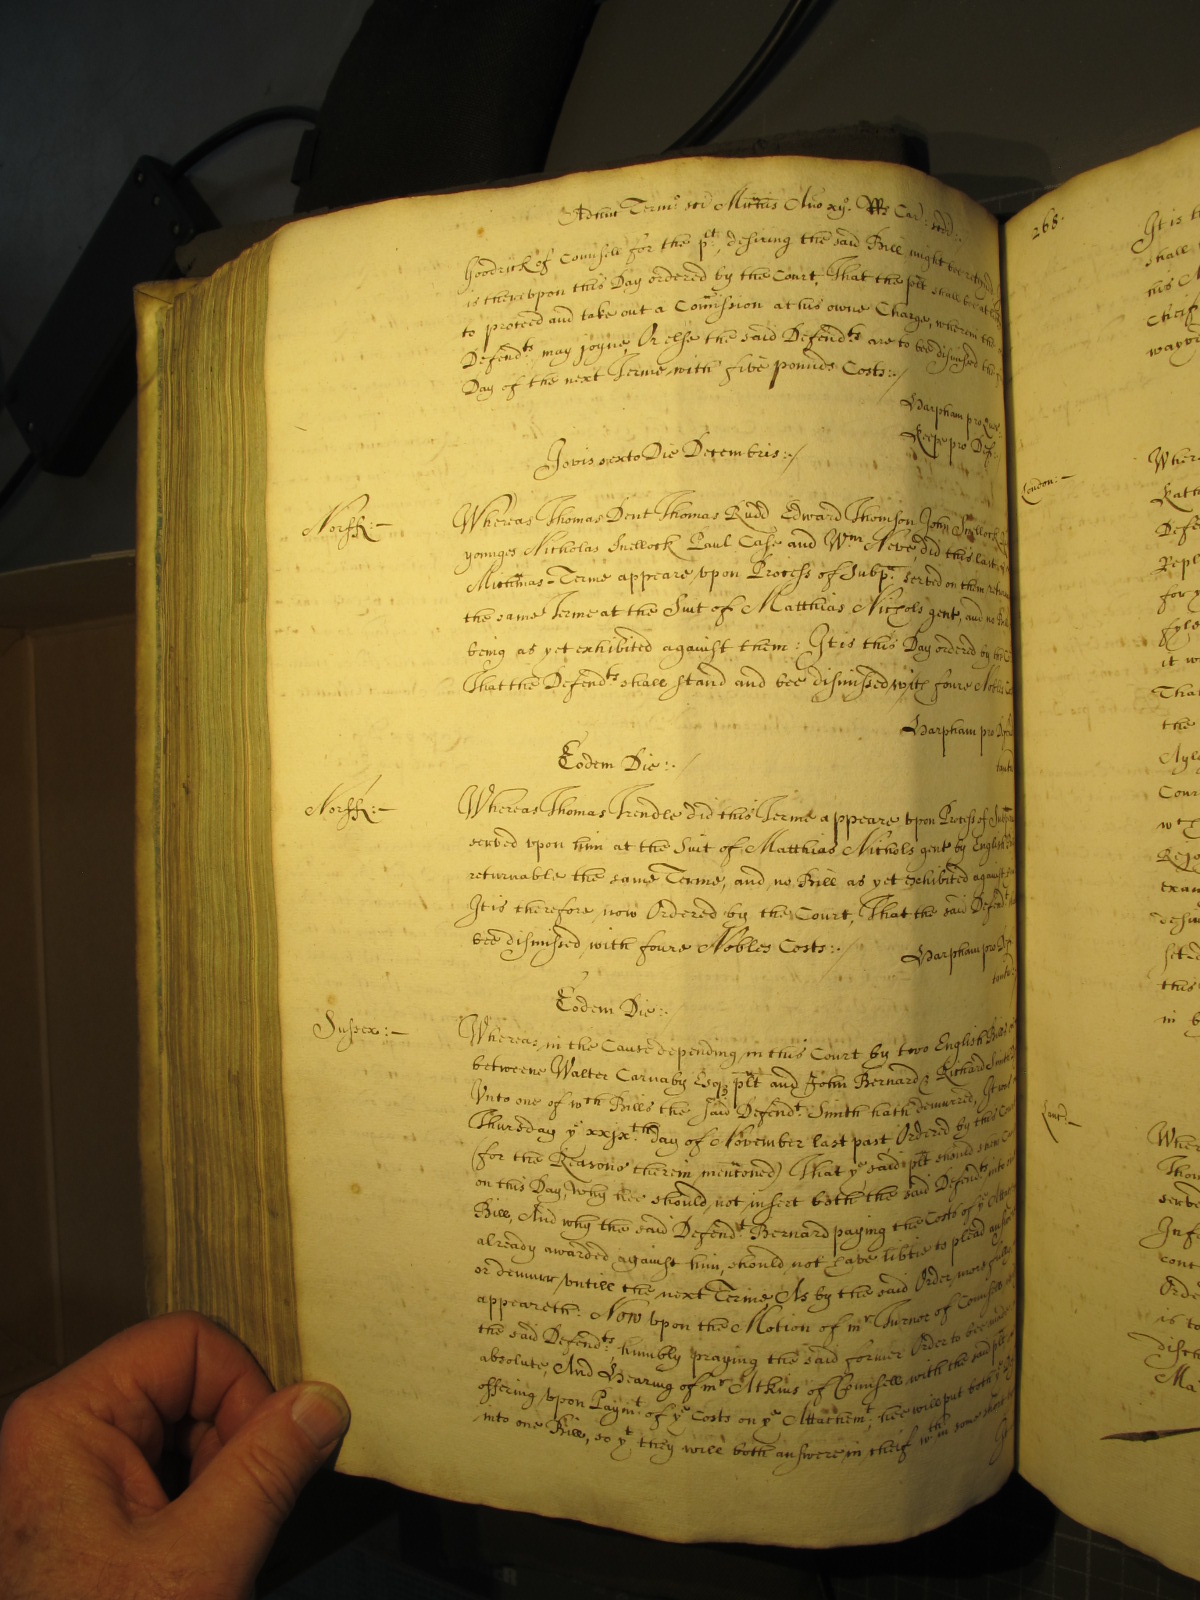 Adhuc Termi sci Michis Anno xij. Rs Car: scdi
Goodrick of Counsell for the plt, desiring the said Bill might bee
is thereupon this Day ordered by the Court, That the plt shall bee at
to proceed and take out a Comission at his owne Charge, wherein the
Defendts may joyne, Or else the said Defendts are to bee dismissed the
Day of the next Terme with five pounds Costs:/
Harpham pro Quer
Keepe pro Def:
Jovis sexto Die Decembris:/
Norff:—
Whereas Thomas Dent Thomas Rudd Edward Thomson John Snellock
younges Nicholas Snellock Paul Case and Wm Neve did this last
Michmas-Terme appeare upon Process of Subp: served on them
the same Terme at the Suit of Matthias Nichols gent, and no
being as yet exhibited against them: It is this Day ordered by the
That the Defendts shall stand and bee dismissed with foure Nobles
Harpham pro
tantu
Eodem Die:/
Norff:—
Whereas Thomas Trendle did this Terme appeare upon Process of
served upon him at the Suit of Matthias Nichols gent by English
returnable the same Terme, and no Bill as yet exhibited against
It is therefore now Ordered by the Court, That the said Defendt
bee dismissed with foure Nobles Costs:/
Harpham pro Def
tantu:
Eodem Die:
Sussex:—
Whereas in the Cause depending in this Court by two English Bills
betweene Walter Carnaby Esqr plt and John Bernard & Richard Smith
Unto one of wch Bills the said Defendt Smith hath demurred, It was
Thursday ye xxixth day of November last past Ordered by this
(for the Reasons therein mentioned) That ye said plt should shew
on this Day, why hee should not insert both the said Defendts into
Bill, And why the said Defendt Bernard paying the Costs of ye
already awarded against him, should not have libtie to plead
or demurr untill the next Terme, As by the said Order more fully
appeareth: Now upon the Motion of mr Turnor of Counsell
the said Defendts humbly praying the said former Order to bee made
absolute, And Hearing of mr Atkins of Counsell with the said plt
offering upon Paymt of ye Costs on ye Attachmt, hee will put both ye
into one Bill, so yt they will both answere in theis wthin some short
268.
It is
shall
his
London:—
Wher
Defe
Repl
for
it w
That
the
Cour
wch
Rejo
exam
desir
this
in
Kant:—
Wher
Thom
serve
Info
cont
Orde
is to
disch
Ma